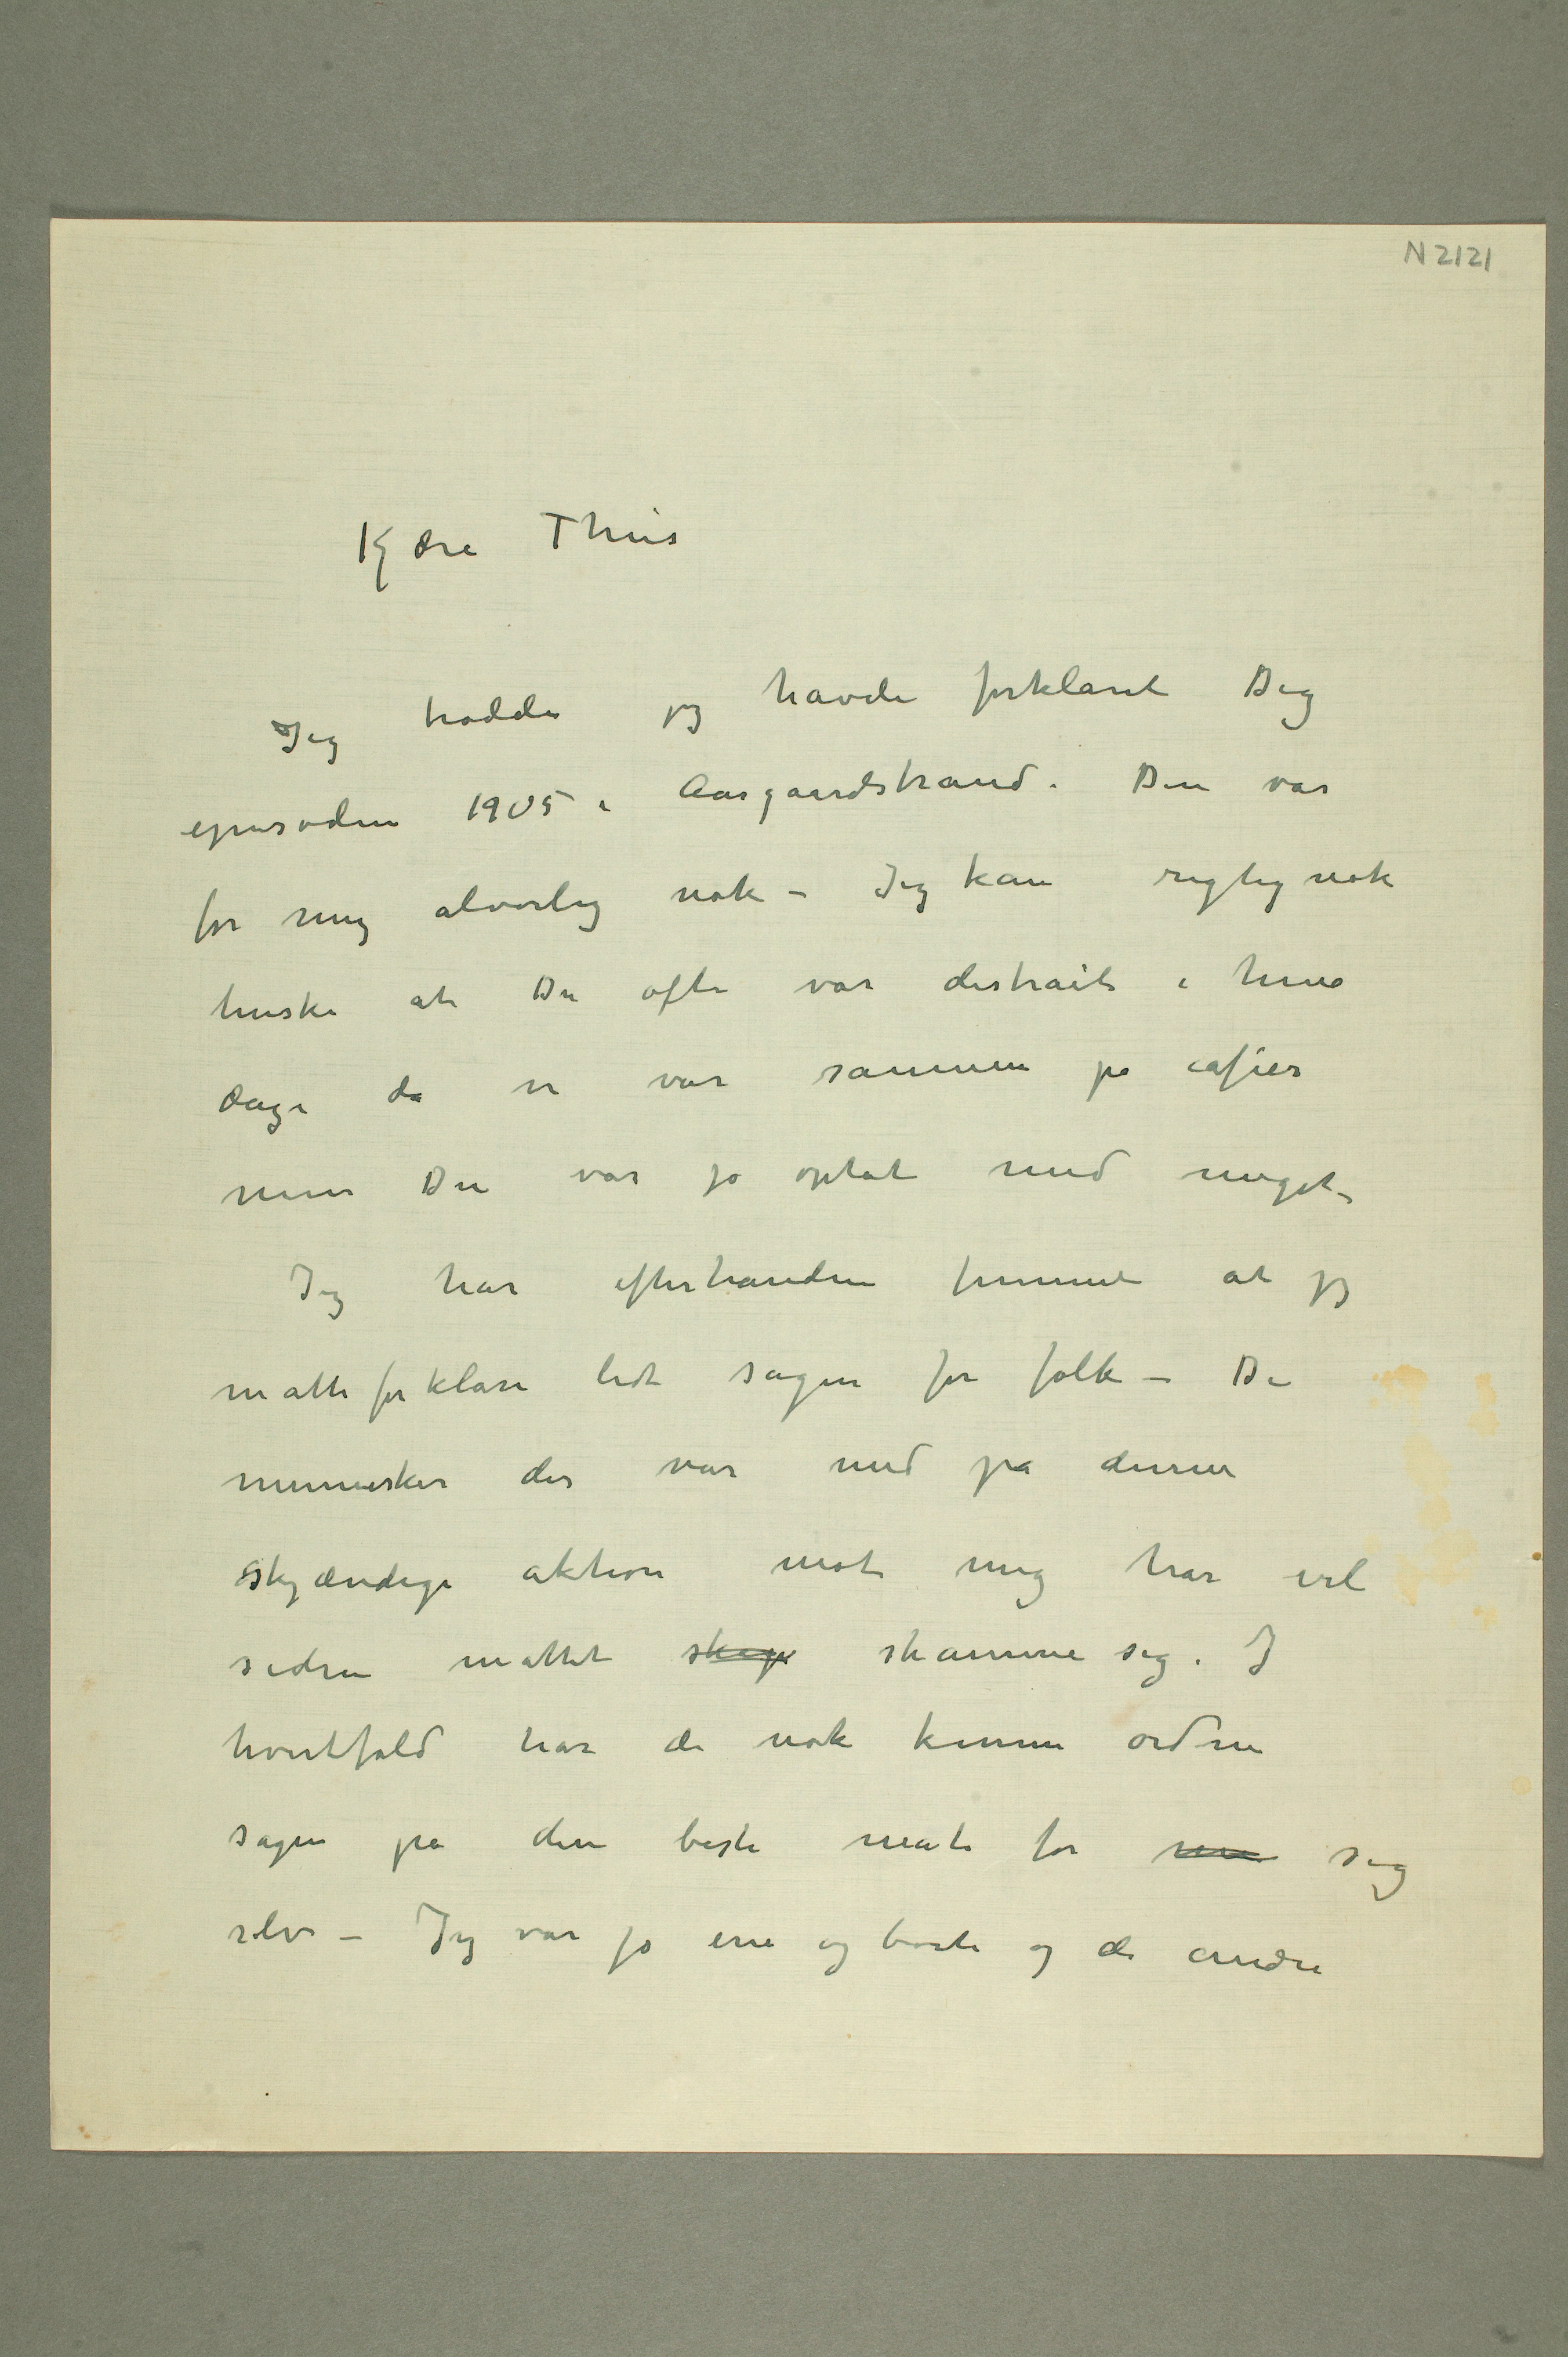 N 2121
Kjære Thiis
Jeg trodde jeg havde forklaret Dig
episoden 1905 i Aasgaardstrand. Den var
for mig alvorlig nok – Jeg kan rigtignok
huske at Du ofte var distrait i hine
dage da vi var sammen på caféer
men Du var jo optat med meget –
Jeg har efterhanden funnet at jeg
måtte forklare lidt sagen for folk – De
mennesker der var med på denne
skjændige aktion mot mig har vel
siden måttet skage skamme sig. I
hvertfald har de nok kunne ordne
sagen på den beste måte for sig
selv – Jeg var jo ene og borte og de andre